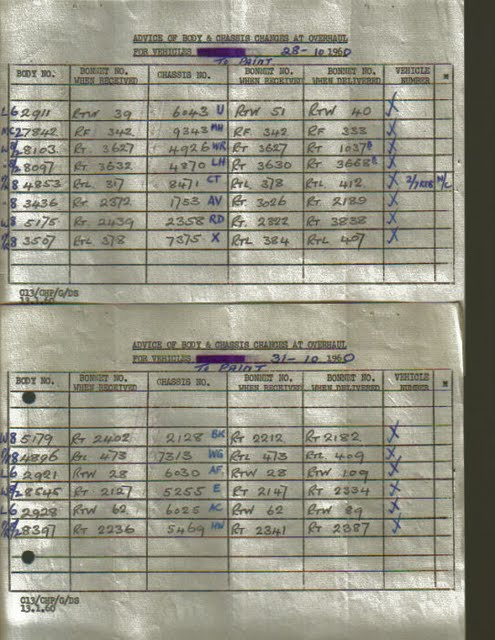 ADVICE OF BODY & CHASSIS CHANGES AT OVERHAUL
FOR VEHICLES 28-10 1960
TO PAINT
BODY NO. BONNET NO. WHEN RECEIVED CHASSIS NO. BONNET NO. WHEN RECEIVED BONNET NO. WHEN DELIVERED VEHICLE NUMBER
L6 2911 RTW 39 6043 U RTW 51 RTW 40 X
27842 RF 342 9343 MH RF 342 RF 333 X
8103 RT 3627 4926 WR RT 3627 RT 1037 X
8097 RT 3632 4870 LH RT 3630 RT 3668 X
8 4853 RTL 317 8471 CT RTL 378 RTL 412 X M/C
8 3436 RT 2372 1753 AV RT 3026 RT 2189 X
W8 5175 RT 2439 2358 RD RT 2322 RT 3838 X
8 3507 RTL 378 7375 X RTL 384 RTL 407 X
C13/CHP/G/DS
13.1.60
ADVICE OF BODY & CHASSIS CHANGES AT OVERHAUL
FOR VEHICLES 31-10 1960
TO PAINT
BODY NO. BONNET NO. WHEN RECEIVED CHASSIS NO. BONNET NO. WHEN RECEIVED BONNET NO. WHEN DELIVERED VEHICLE NUMBER
W8 5179 RT 2402 2128 BK RT 2212 RT 2182 X
8 4896 RTL 473 7313 WG RTL 473 RTL 409 X
L6 2921 RTW 28 6030 AF RTW 28 RTW 109 X
8545 RT 2127 5255 E RT 2147 RT 2334 X
L6 2928 RTW 62 6025 AC RTW 62 RTW 89 X
8397 RT 2236 5469 HN RT 2341 RT 2387 X
C13/CHP/G/DS
13.1.60